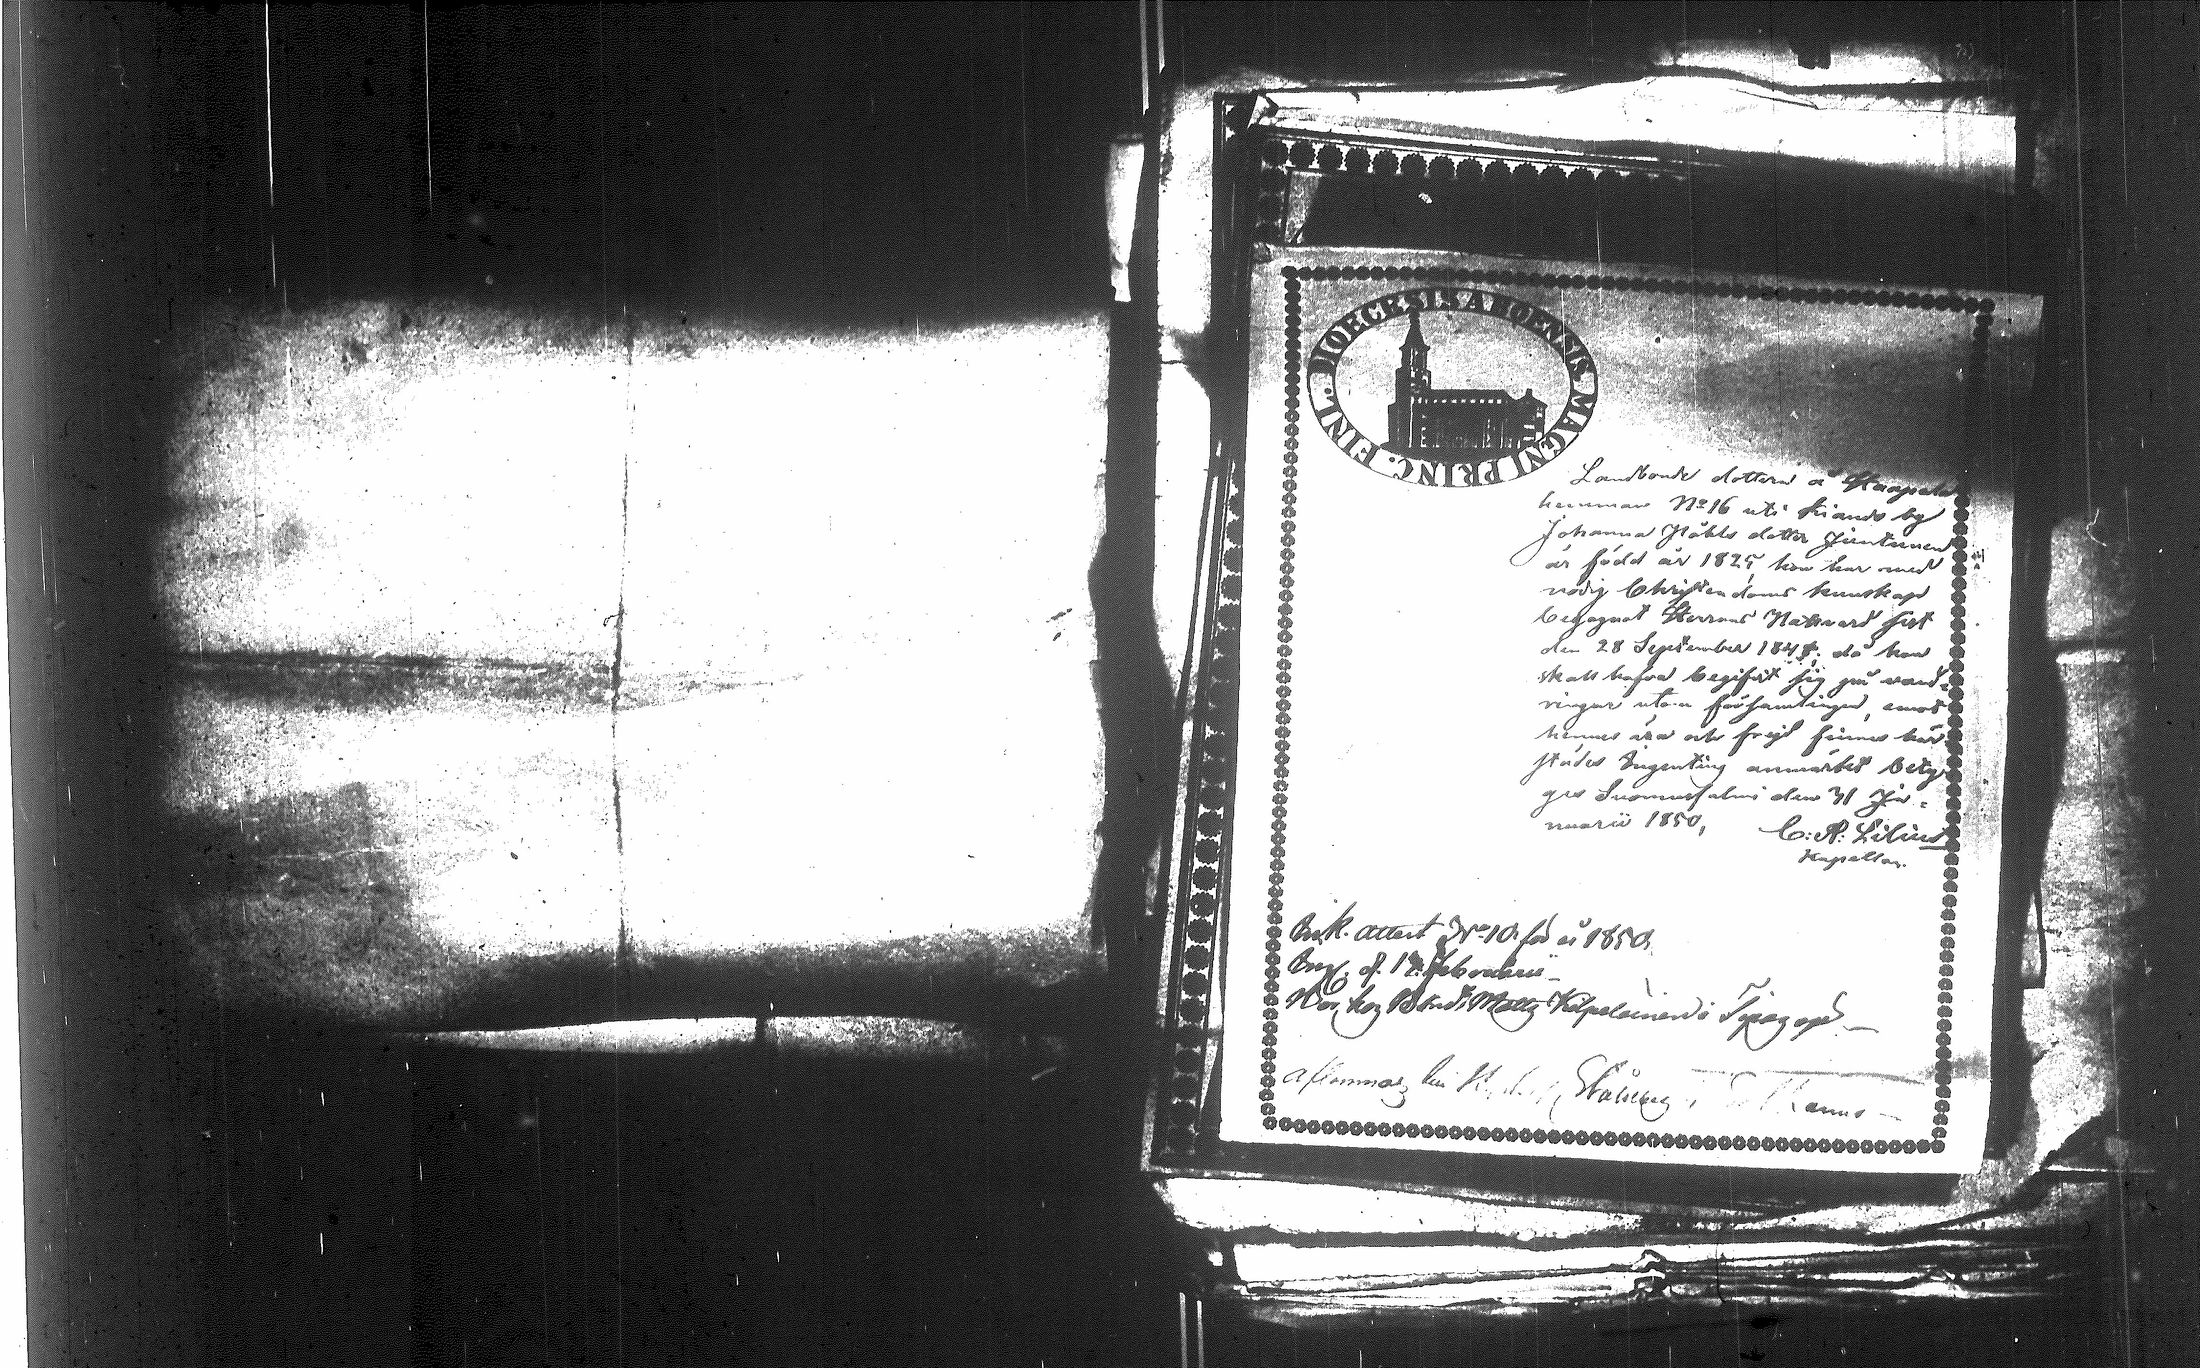 DIOECESIS ABOENSIS MAGNI PRINC. FINL.
Landbonde dottern å Haapala
hemman No 16 uti Kiando by
Johanna Påhls dotter Juntunen
är född år 1825, hon har med
nödig Christendoms kunskap
begagnat Herrans Nattvard sist
den 28 September 1848, då hon
skall hafva begifvit sig på vand-
ringar utom församlingen, emot
hennes ära och frejd finnes här
städes Ingenting anmärkt Bety-
gas Suomussalmi den 31 Ja-
nuarii 1850,
C: A: Lilius
Kapellan.
attest No 10 för år 1850.
d. Februarii
Matts Kilpeläinen i